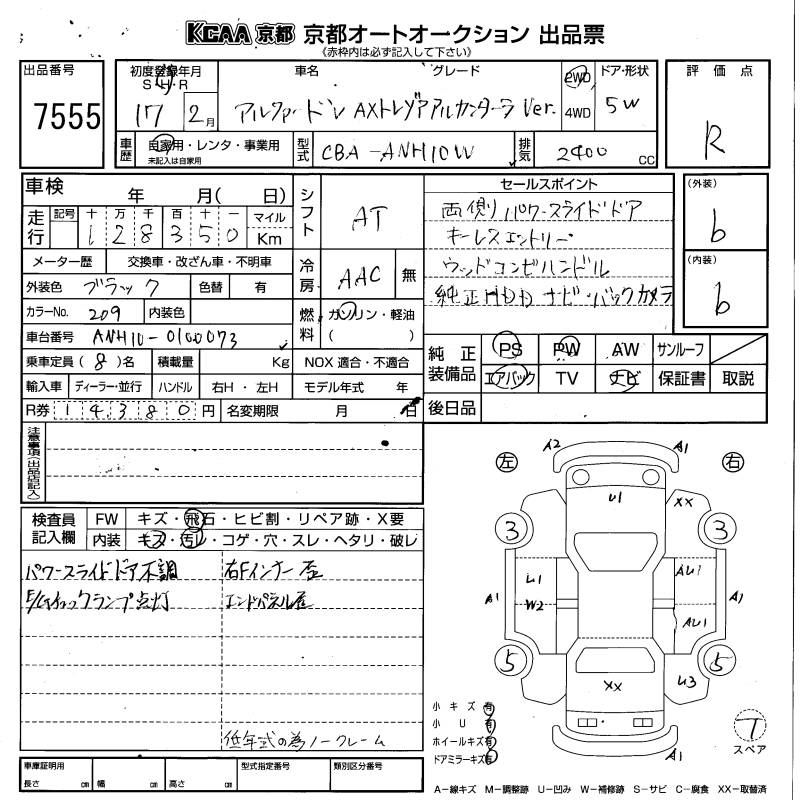 KCAA 京都 京都オートオークション 出品票
《赤枠内は必ず記入して下さい》
出品番号 7555
初度登録年月 S・H・R 17 2月
車名 グレード アルファード V AXトレゾアアルカンターラ Ver.
2WD 4WD
ドア・形状 5W
評価点 R
車歴 自家用・レンタ・事業用 未記入は自家用
型式 CBA-ANH10W
排気 2400 CC
車検 年 月( 日)
走行 記号 十 万 千 百 十 一 マイル
1 2 8 3 5 0 Km
メーター歴 交換車・改ざん車・不明車
外装色 ブラック 色替 有
カラーNo. 209 内装色
車台番号 ANH10-0100073
乗車定員 (8)名 積載量 Kg
輸入車 ディーラー・並行 ハンドル 右H・左H
R券 14380円 名変期限 月 日
シフト AT
冷房 AAC 無
燃料 ガソリン・軽油 ( )
NOX 適合・不適合
モデル年式 年
セールスポイント
両側パワースライドドア
キーレスエントリー
ウッドコンビハンドル
純正HDDナビ・バックカメラ
(外装) b
(内装) b
純正装備品 PS PW AW サンルーフ
エアバック TV ナビ 保証書 取説
後日品
注意事項(出品店記入)
検査員記入欄 FW キズ・飛石・ヒビ割・リペア跡・X要
内装 キズ・汚レ・コゲ・穴・スレ・ヘタリ・破レ
パワースライドドア不調 右Fインナー歪
E/Gチェックランプ点灯 エンドパネル歪
低年式の為ノークレーム
左 右
A2 A1
U1 XX
3 3
U1 AU1
A1 W2 A1
AU1
5 5
XX U3
A1
小キズ 有
小 U 有
ホイールキズ 有
ドアミラーキズ 有
T
スペア
車庫証明用 長さ cm 幅 cm 高さ cm
型式指定番号 類別区分番号
A-線キズ M-調整跡 U-凹み W-補修跡 S-サビ C-腐食 XX-取替済